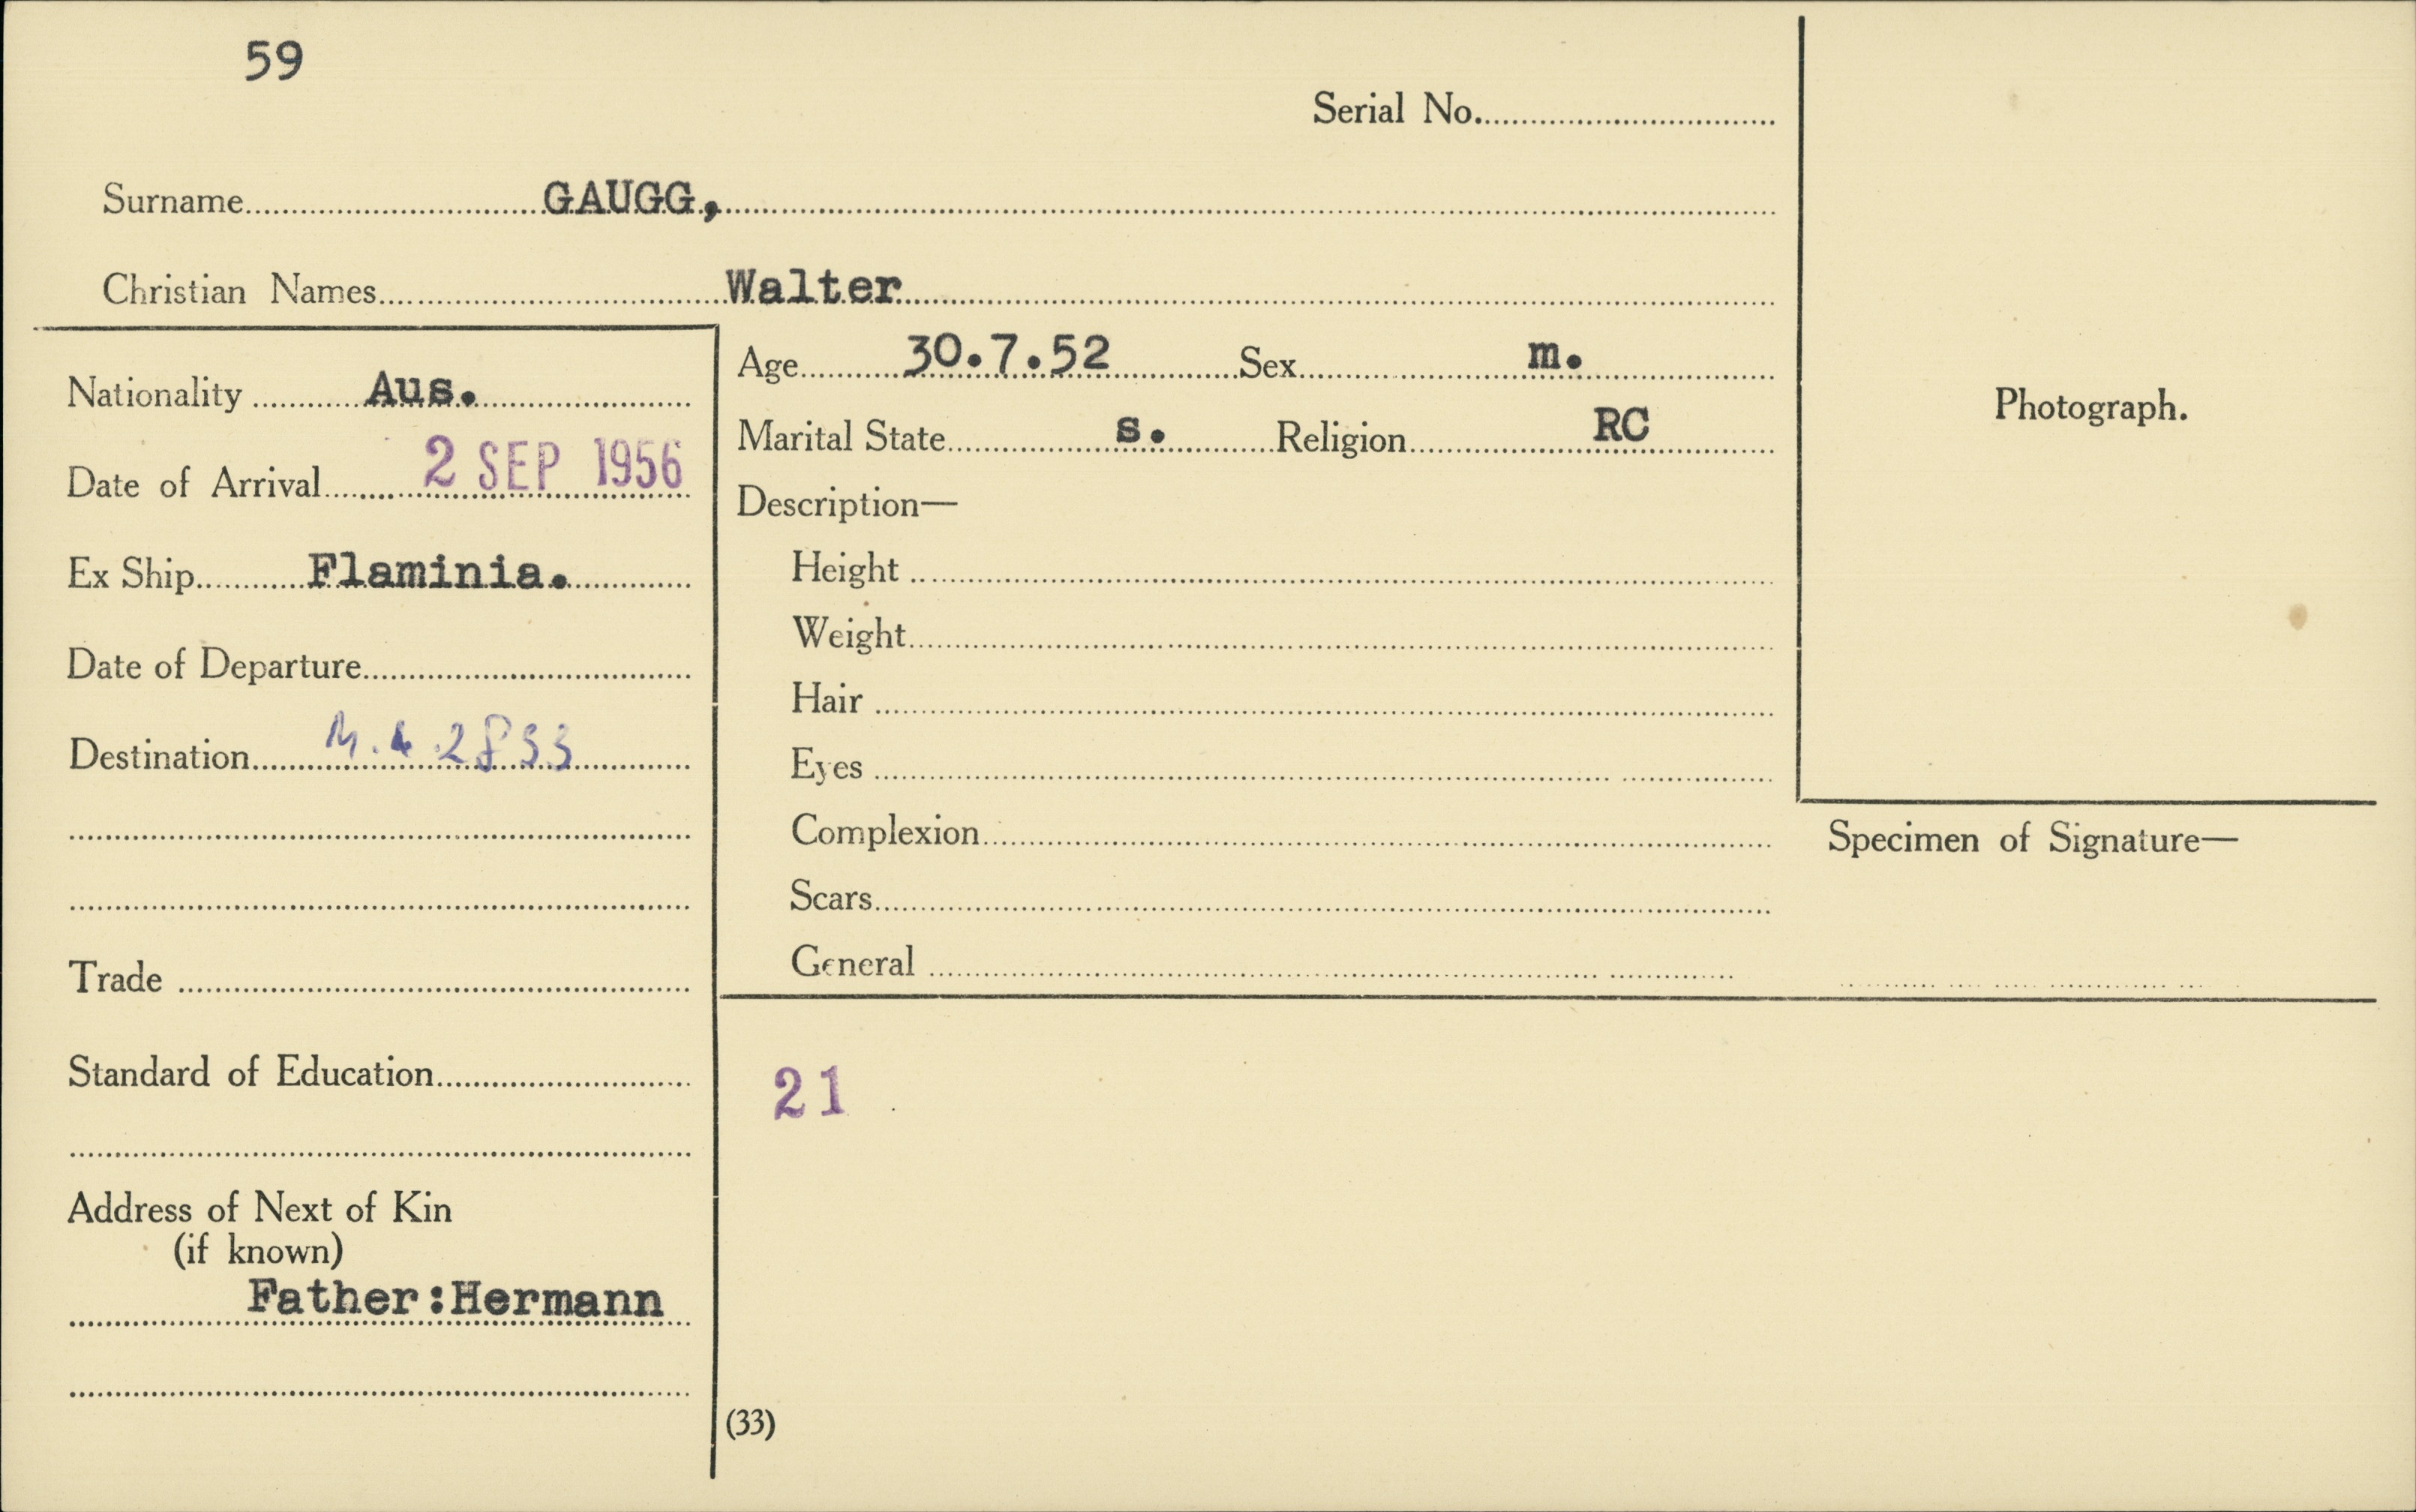 59
Serial No.
Surname GAUGG,
Christian Names Walter
Nationality Aus.
Date of Arrival 2 SEP 1956
Ex Ship Flaminia.
Date of Departure
Destination M. 4 2833
Trade
Standard of Education
Address of Next of Kin
(if known)
Father:Hermann
Age 30.7.52 Sex m.
Marital State s. Religion RC
Description—
Height
Weight
Hair
Eyes
Complexion
Scars
General
21
(33)
Photograph.
Specimen of Signature—